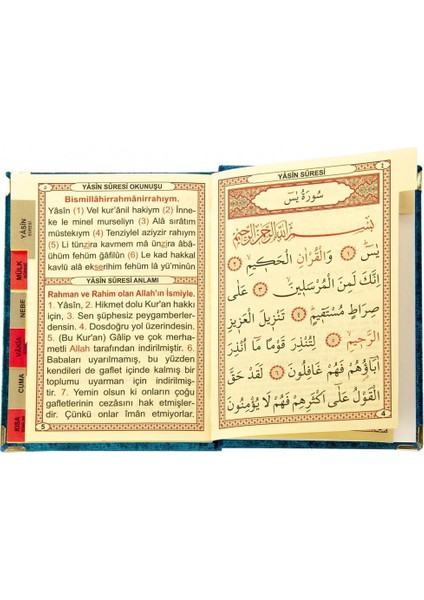 YÂSÎN SÛRESİ OKUNUŞU
Bismillâhirrahmânirrahıym.
Yâsîn (1) Vel kur'ânil hakiym (2) İnne-
ke le minel murseliyn (3) Alâ sırâtım
müstekıym (4) Tenziylel aziyzir rahıym
(5) Li tünzira kavmem mâ ünzira âbâ-
ühüm fehüm ğâfilûn (6) Le kad hakkal
kavlü alâ ekserihim fehüm lâ yü'minûn
YÂSÎN SÛRESİ ANLAMI
Rahman ve Rahim olan Allah'ın İsmiyle.
1. Yâsîn. 2. Hikmet dolu Kur'an hakkı
için, 3. Sen şüphesiz peygamberler-
densin. 4. Dosdoğru yol üzerindesin.
5. (Bu Kur'an) Gâlip ve çok merha-
metli Allah tarafından indirilmiştir. 6.
Babaları uyarılmamış, bu yüzden
kendileri de gaflet içinde kalmış bir
toplumu uyarman için indirilmiş-
tir. 7. Yemin olsun ki onların çoğu
gafletlerinin cezasını hak etmişler-
dir. Çünkü onlar îmân etmiyorlar.
5
YÂSİN
SÛRESİ
MÜLK
NEBE
VÂKIA
CUMA
KISA
YÂSÎN SÛRESİ
سُورَةُ يٰسٓ
بِسْمِ اللّٰهِ الرَّحْمٰنِ الرَّحِيمِ
يٰسٓ ﴿١﴾ وَالْقُرْاٰنِ الْحَكِيمِ ﴿٢﴾
اِنَّكَ لَمِنَ الْمُرْسَلِينَ ﴿٣﴾ عَلٰى
صِرَاطٍ مُسْتَقِيمٍ ﴿٤﴾ تَنْزِيلَ الْعَزِيزِ
الرَّحِيمِ ﴿٥﴾ لِتُنْذِرَ قَوْمًا مَٓا اُنْذِرَ
اٰبَٓاؤُ۬هُمْ فَهُمْ غَافِلُونَ ﴿٦﴾ لَقَدْ حَقَّ
الْقَوْلُ عَلٰٓى اَكْثَرِهِمْ فَهُمْ لَا يُؤْمِنُونَ
4